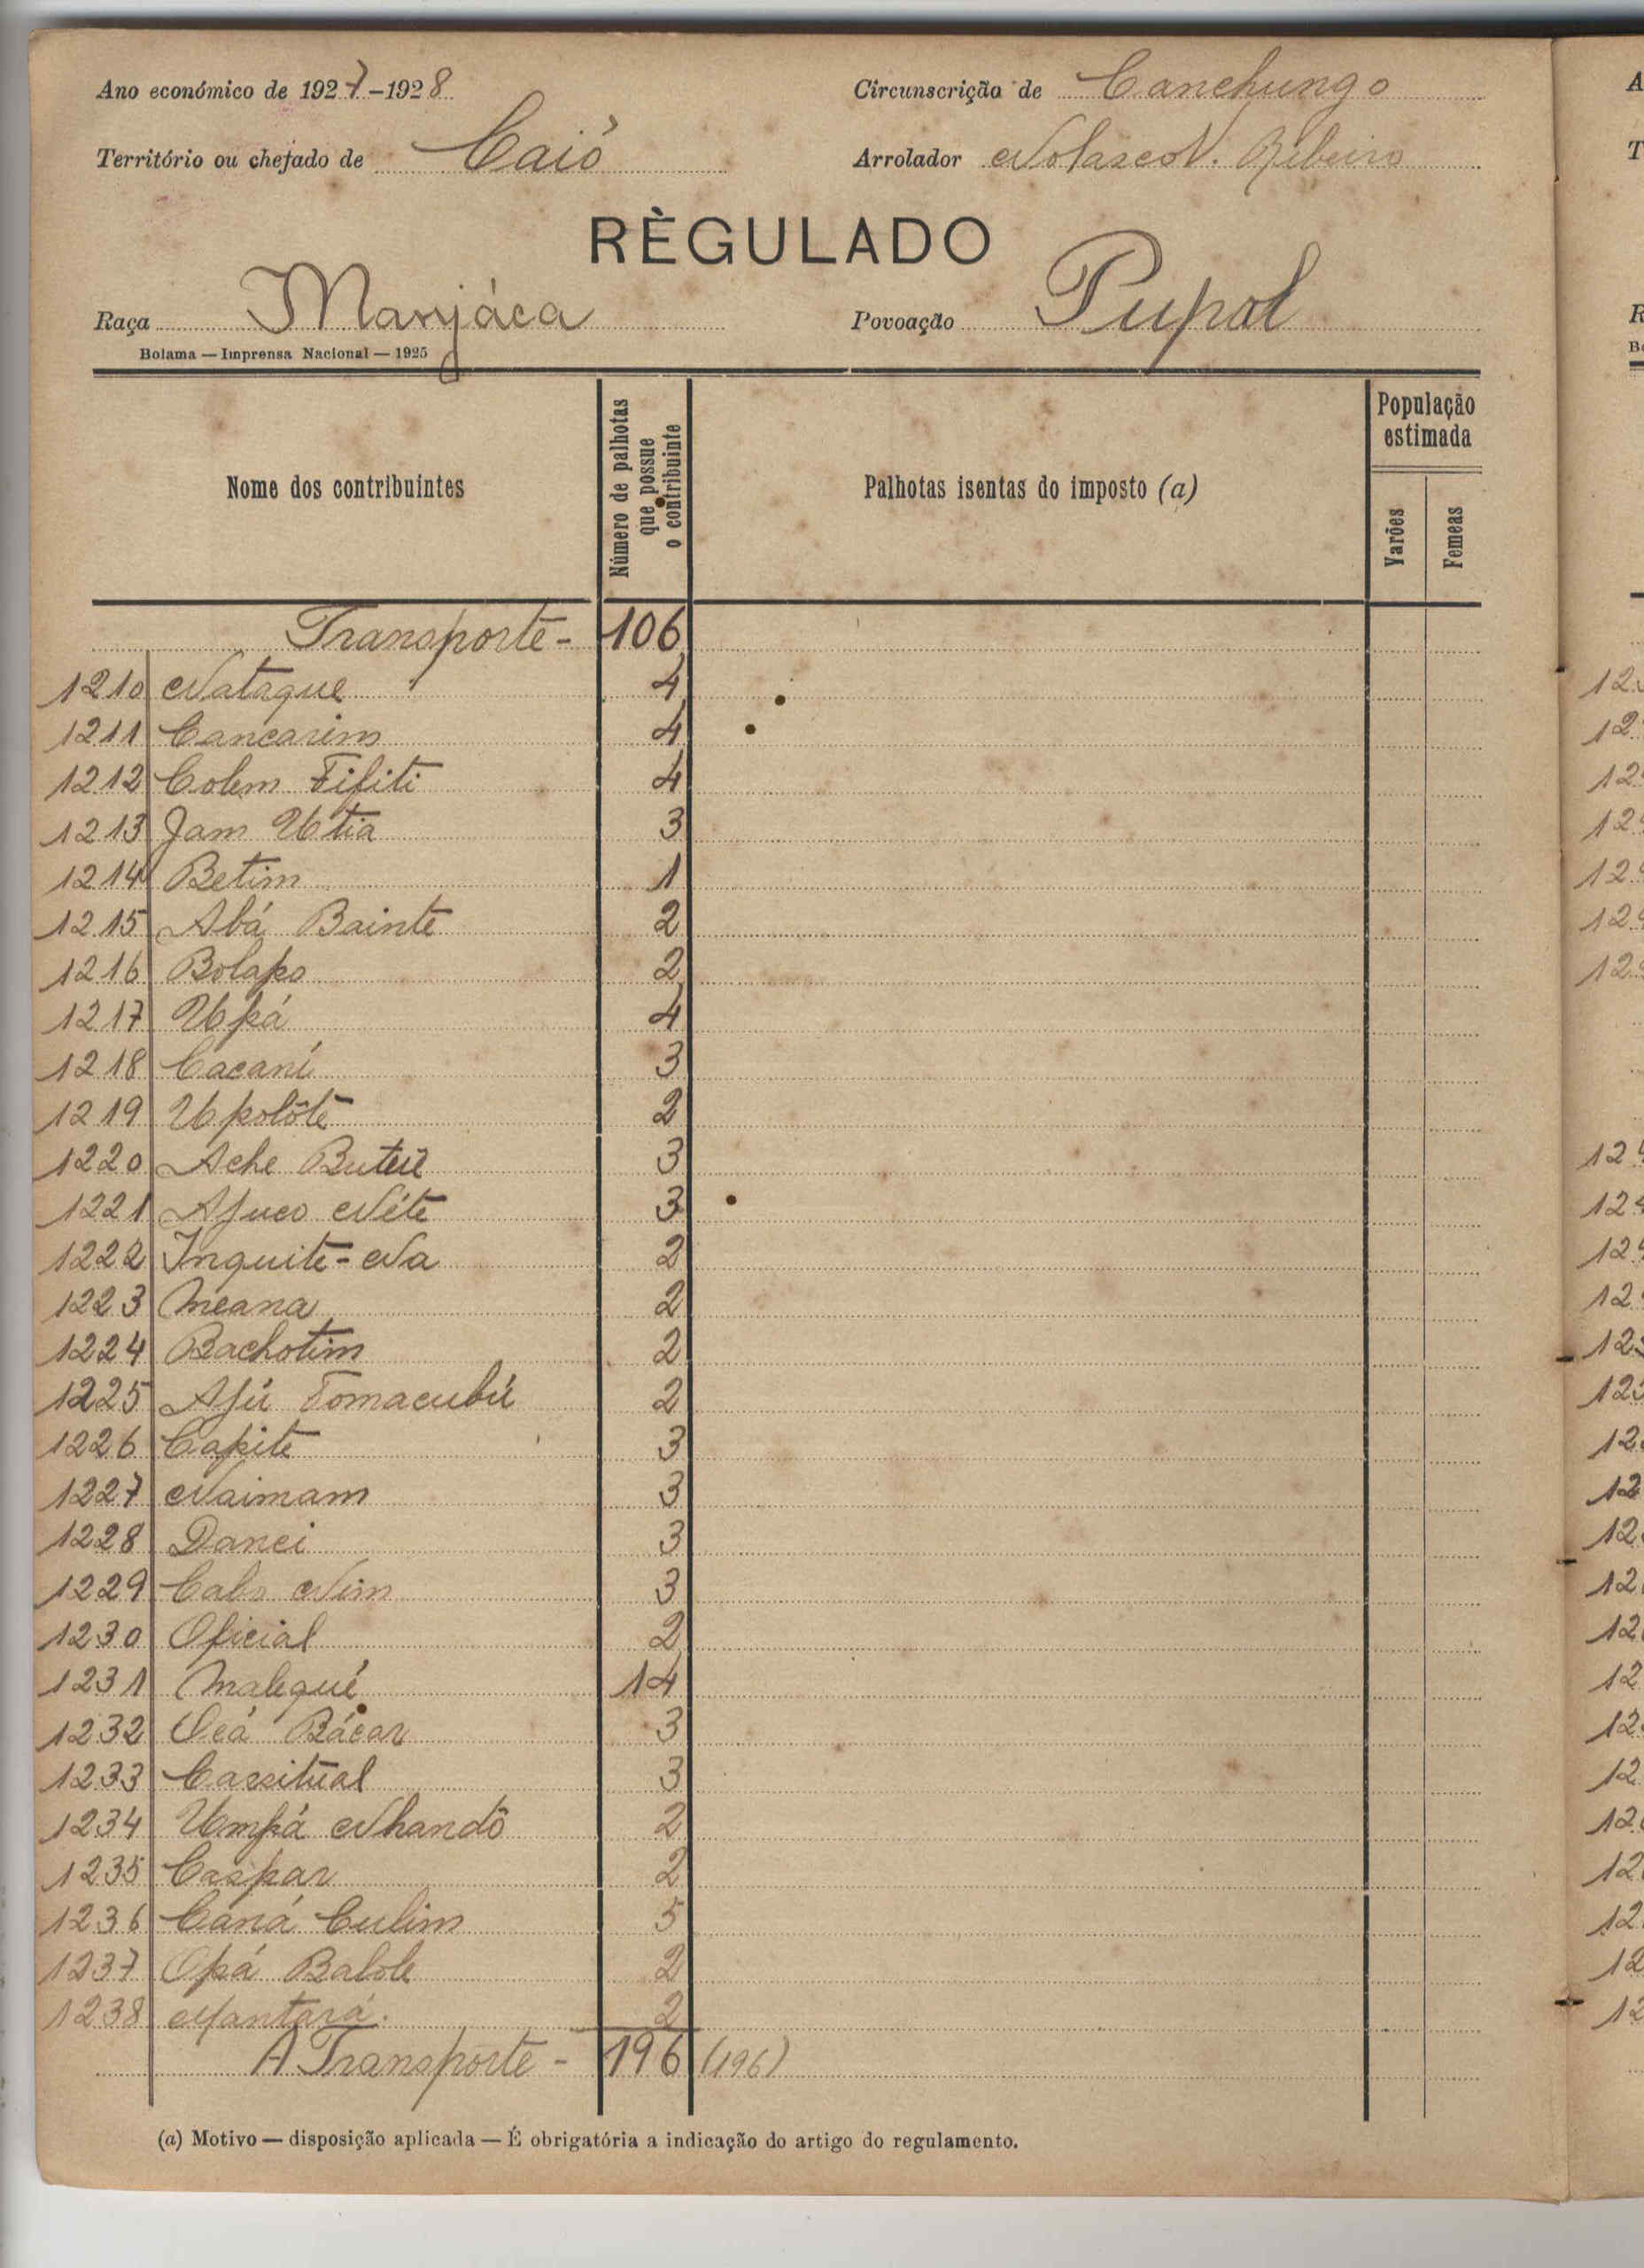 Ano económico de 1927-1928
Circunscrição de Canchungo
Território ou chefado de Caió
Arrolador Nolasco N. Ribeiro
RÈGULADO
Raça Manjáca
Povoação Pupol
Bolama — Imprensa Nacional — 1925
Nome dos contribuintes
Número de palhotas que possue o contribuinte
Palhotas isentas do imposto (a)
População estimada
Varões
Femeas
Transporte - 106
1210 Nataque 4
1211 Cancarim 4
1212 Colem Fifiti 4
1213 Jam Utia 3
1214 Betim 1
1215 Abá Bainte 2
1216 Bolapo 2
1217 Upá 4
1218 Cacaní 3
1219 Upolôte 2
1220 Ache Buteie 3
1221 Ajuco Néte 3
1222 Inquite-Na 2
1223 Meana 2
1224 Bachotim 2
1225 Ajú Tomacubú 2
1226 Capite 3
1227 Naimam 3
1228 Danci 3
1229 Cabo Nim 3
1230 Oficial 2
1231 Malequé 14
1232 Ocá Bácar 3
1233 Cassitual 3
1234 Umpá Nhandô 2
1235 Caspar 2
1236 Caná Culim 5
1237 Opá Balole 2
1238 Nantará. 2
A Transporte - 196 (196)
(a) Motivo — disposição aplicada — É obrigatória a indicação do artigo do regulamento.